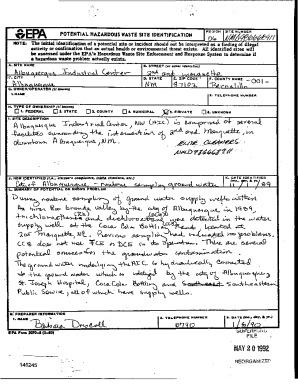 EPA
POTENTIAL HAZARDOUS WASTE SITE IDENTIFICATION
REGION
06
SITE NUMBER
NOTE: The initial identification of a potential site or incident should not be interpreted as a finding of illegal
activity or confirmation that an actual health or environmental threat exists. All identified sites will
be assessed under the EPA's Hazardous Waste Site Enforcement and Response System to determine if a
hazardous waste problem actually exists.
A. SITE NAME
Albuquerque Industrial Center
B. STREET (or other identifier)
2nd and Marquette
C. CITY
Albuquerque
D. STATE
NM
E. ZIP CODE
87102
F. COUNTY NAME
-001-
Bernalillo
G. OWNER/OPERATOR (if known)
1. NAME
2. TELEPHONE NUMBER
H. TYPE OF OWNERSHIP (if known)
1. FEDERAL 2. STATE 3. COUNTY 4. MUNICIPAL 5. PRIVATE 6. UNKNOWN
I. SITE DESCRIPTION
Albuquerque Industrial Center, NM (AIC) is comprised of several
facilities surrounding the intersection of 2nd and Marquette, in
downtown Albuquerque, NM.
ELITE CLEANERS
City of Albuquerque - routine sampling ground water
K. DATE IDENTIFIED
L. SUMMARY OF POTENTIAL OR KNOWN PROBLEM
During routine sampling of ground water supply wells within
the Rio Grande valley by the city of Albuquerque in 1989,
trichloroethane and dichloroethane were detected in the water
supply well at the Coca Cola Bottling Plant located at
205 Marquette NE. Previous sampling had indicated no problems.
CCB does not TCE or DCE in its operation. There are several
potential sources for the groundwater contamination.
The ground water underlying the AIC is hydraulically connected
to the ground water which is used by the city of Albuquerque,
St. Joseph Hospital, Coca Cola Bottling and Southeastern
Public Service, all of which have supply wells.
M. PREPARER INFORMATION
1. NAME
Barbara Driscoll
2. TELEPHONE NUMBER
6740
3. DATE (mo., day, & yr.)
EPA Form
SUPERFUND
FILE
MAY 20 1992
REORGANIZED
145245